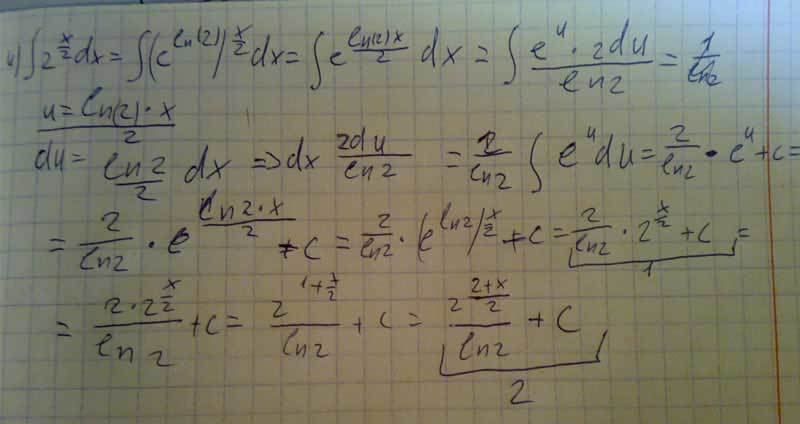 u) ∫ 2^(x/2) dx = ∫ (e^(ln(2)))^(x/2) dx = ∫ e^(ln(2)x/2) dx = ∫ (e^u · 2du)/(ln2) =
u = (ln(2) · x)/2
du = (ln2)/2 dx => dx (2du)/(ln2) = 2/(ln2) ∫ e^u du = 2/(ln2) · e^u + c =
= 2/(ln2) · e^((ln2 · x)/2) + C = 2/(ln2) · (e^(ln2))^(x/2) + C = 2/(ln2) · 2^(x/2) + C =
1
= (2 · 2^(x/2))/(ln2) + C = (2^(1 + x/2))/(ln2) + C = (2^((2+x)/2))/(ln2) + C
2